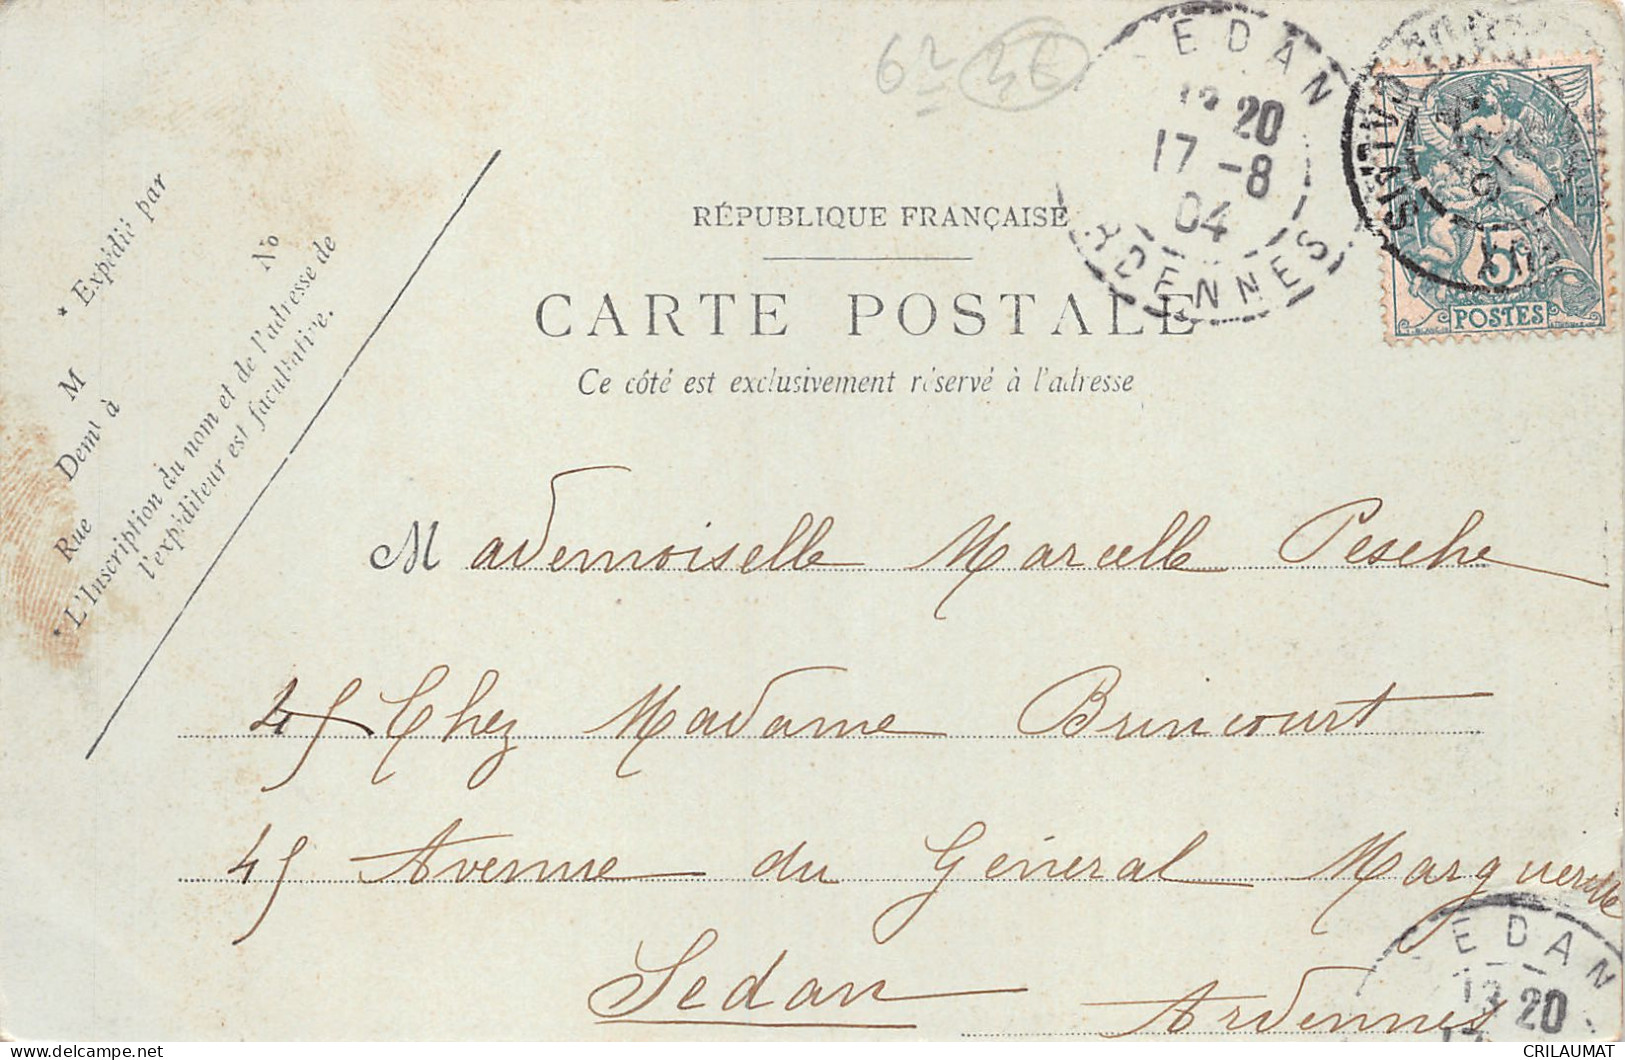 6 36
SEDAN
13 20
17 -8
04
ARDENNES
CALVADOS
POSTES
5
RÉPUBLIQUE FRANÇAISE
CARTE POSTALE
Ce côté est exclusivement réservé à l'adresse
* Expédié par
M
Demt à
Rue No
* L'Inscription du nom et de l'adresse de
l'expéditeur est facultative.
Mademoiselle Marcelle Pesche
45 Chez Madame Brincourt
45 Avenue du Général Margueritte
Sedan Ardennes
EDAN
13 20
17
CRILAUMAT